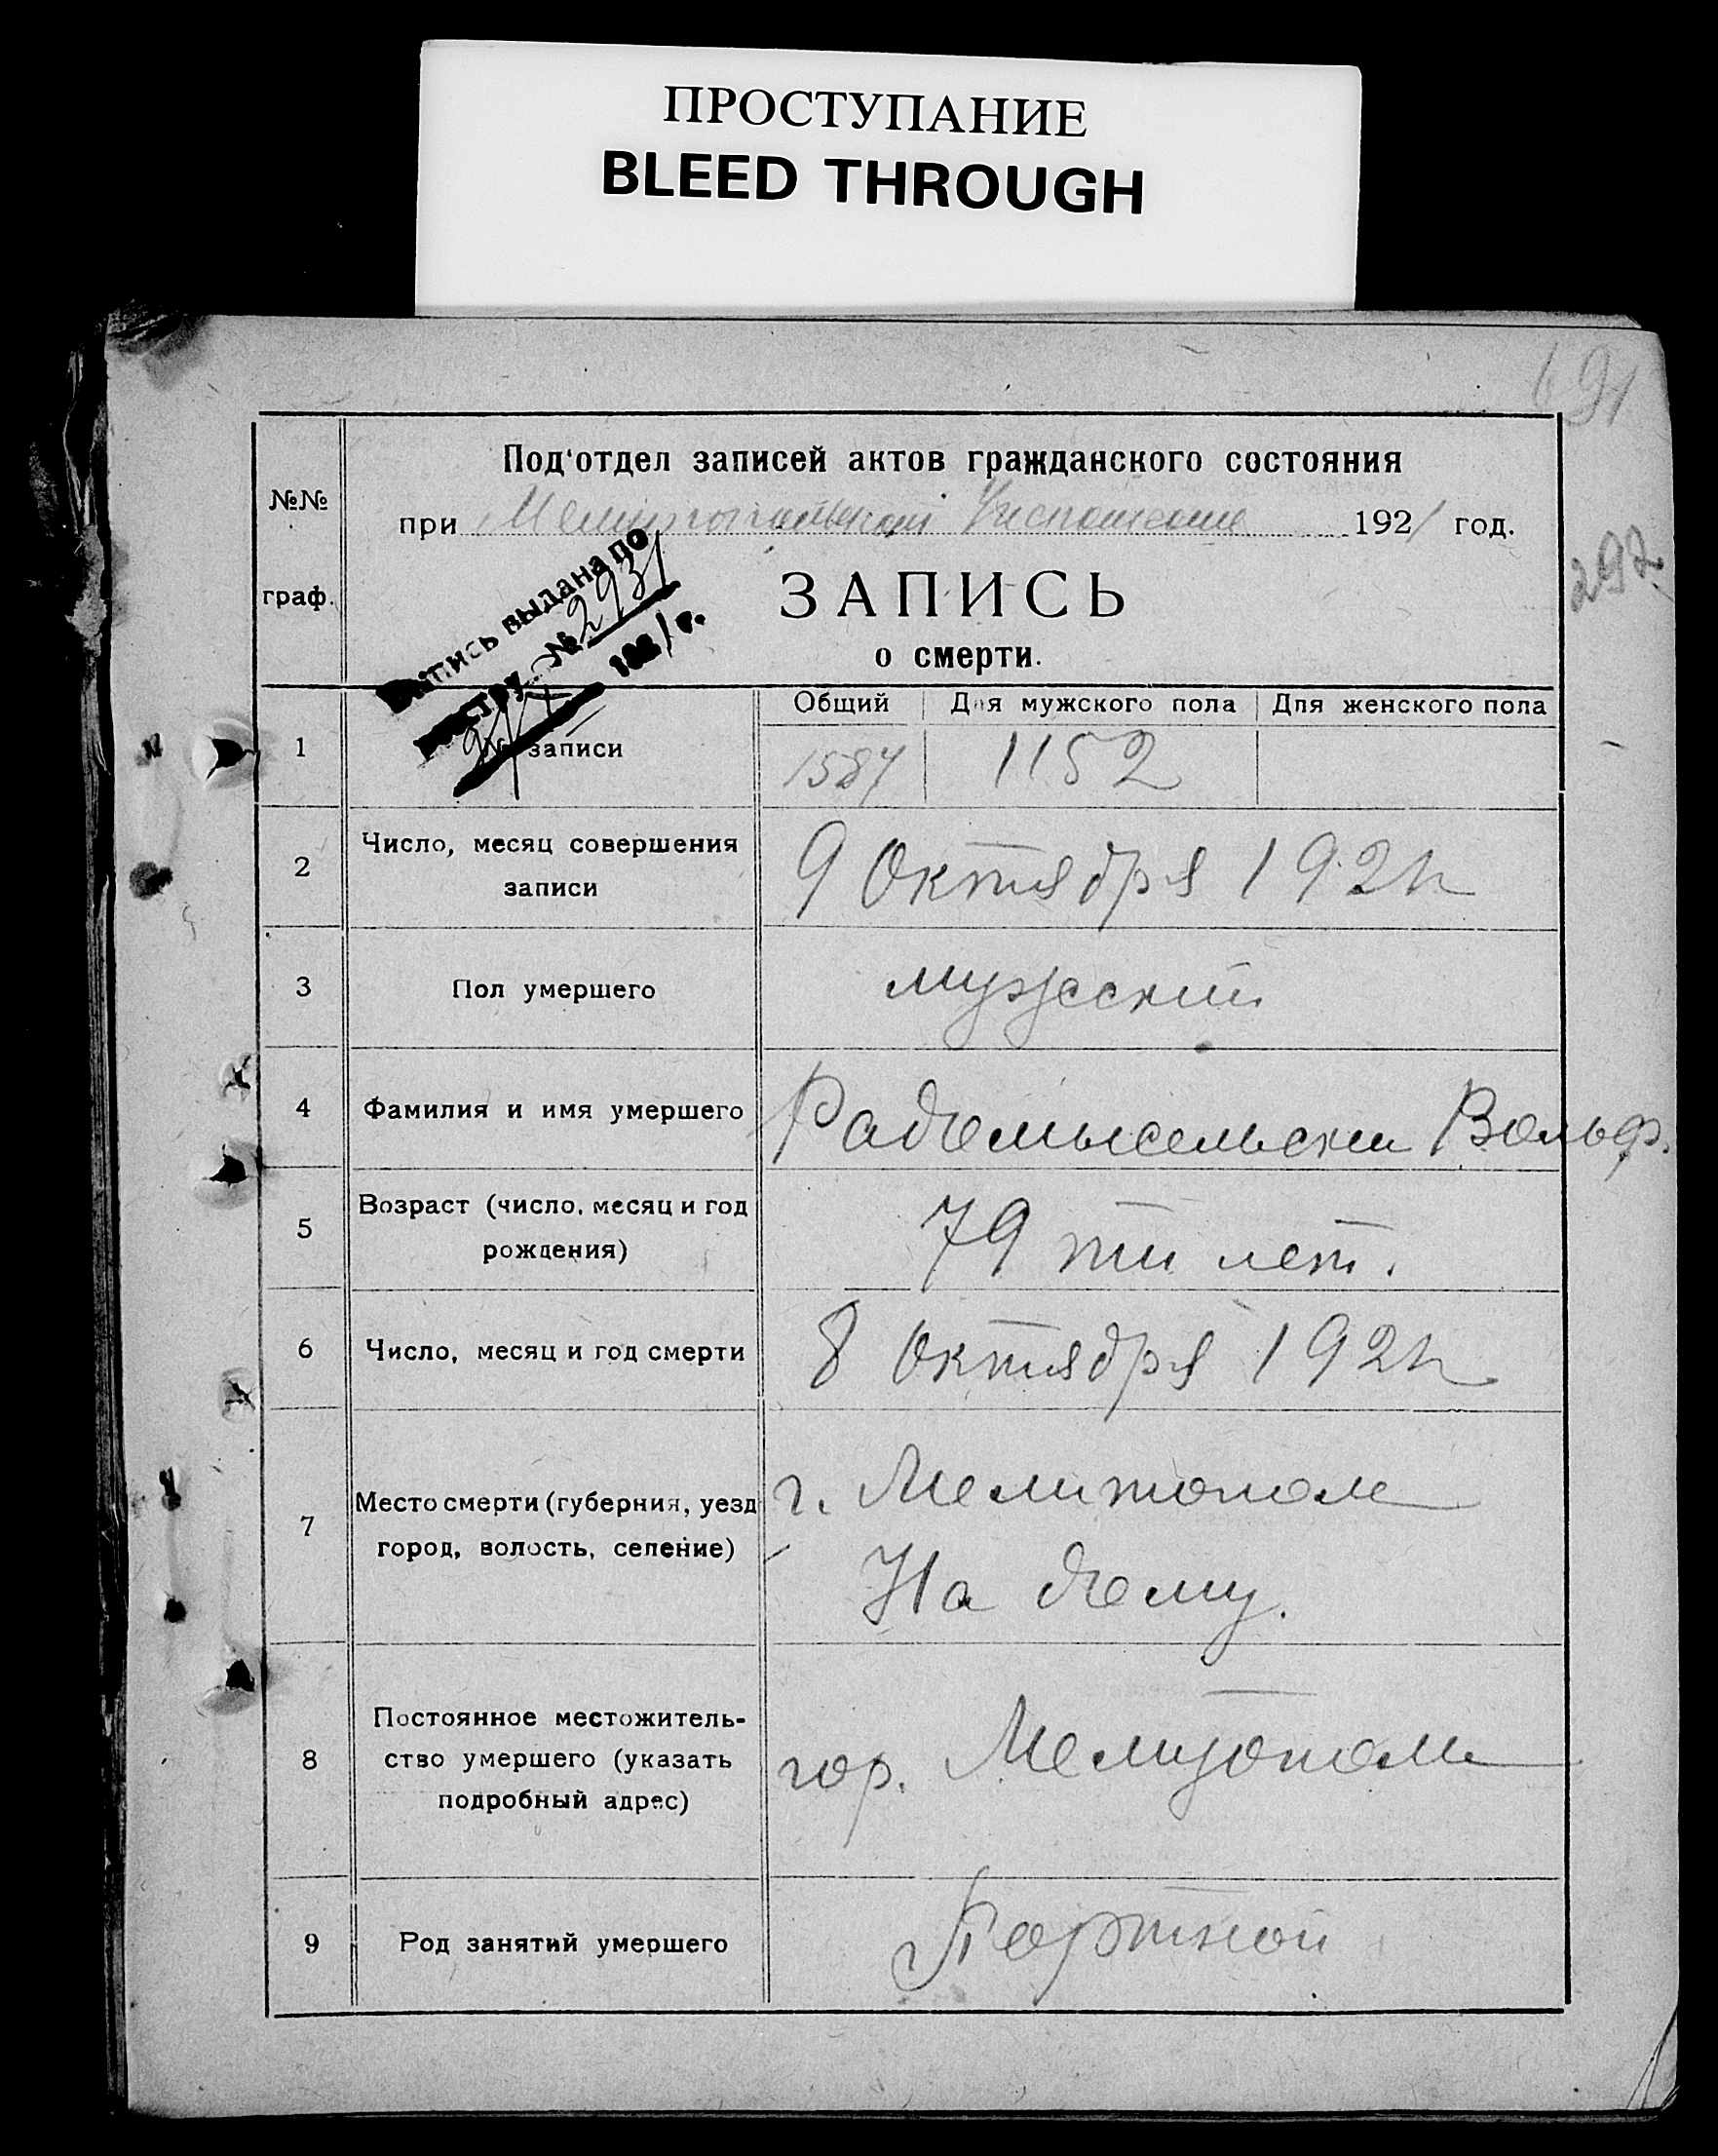 ПРОСТУПАНИЕ
BLEED THROUGH
691
Под‘отдел записей актов гражданского состояния
№№
при Мелитопольском 1921 год.
292
граф.
ЗАПИСЬ
о смерти.
выдана по
№ 2931
192 1 г.
Общий Для мужского пола Для женского пола
1 записи 1587 1152
2 Число, месяц совершения
записи
9 Октября 1921г
3 Пол умершего мужеский
4 Фамилия и имя умершего Радомысельски Вольф.
5 Возраст (число, месяц и год
рождения)
79 ти лет.
6 Число, месяц и год смерти 8 Октября 1921г
7 Место смерти (губерния, уезд
город, волость, селение)
г. Мелитополь
На дому.
8 Постоянное местожитель-
ство умершего (указать
подробный адрес)
гор. Мелитополь
9 Род занятий умершего Портной